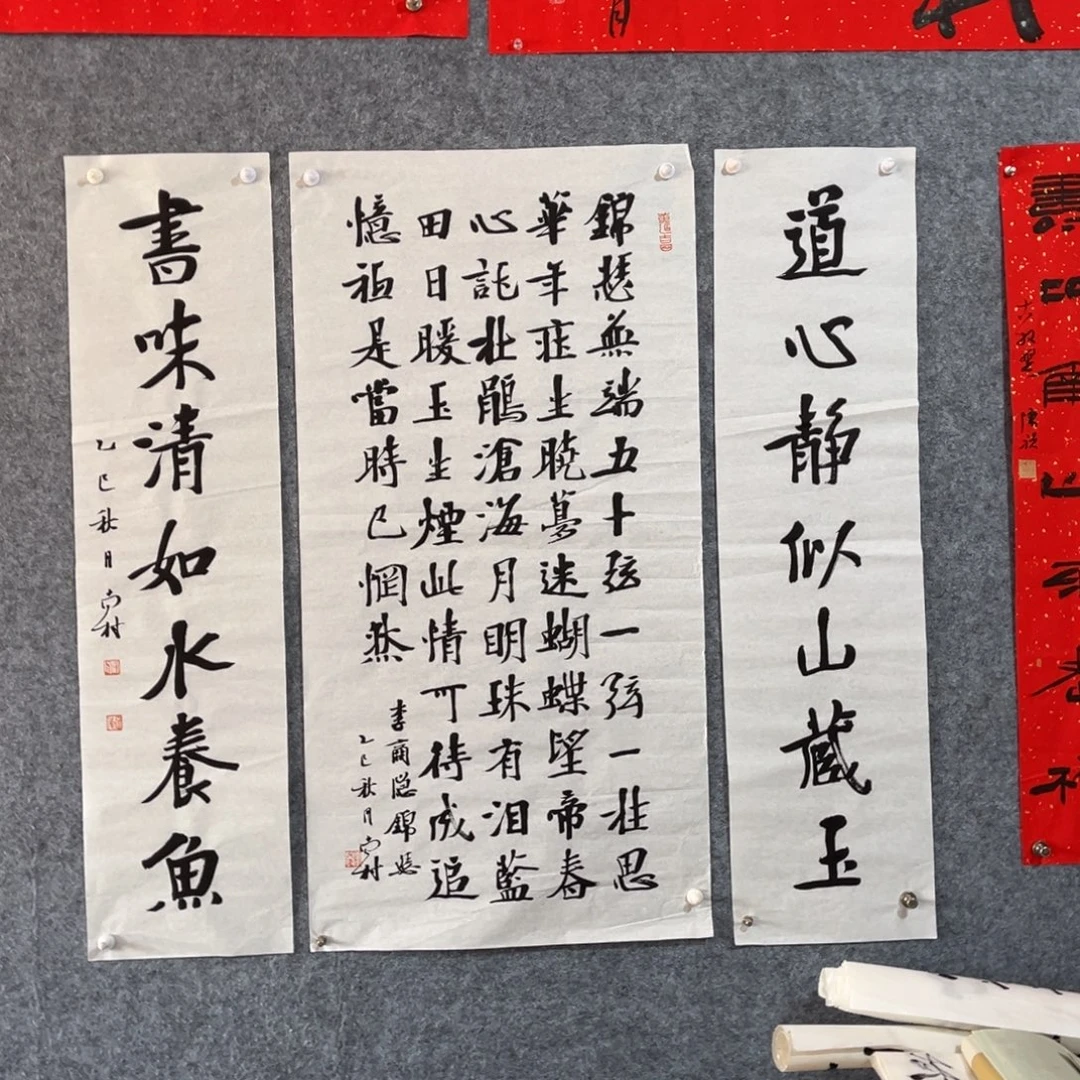 道心静似山藏玉
錦瑟無端五十弦一弦一柱思
華年莊生曉夢迷蝴蝶望帝春
心託杜鵑滄海月明珠有泪藍
田日暖玉生煙此情可待成追
憶祗是噹時已惘然
李商隐錦瑟
乙巳秋月 村
書味清如水養魚
乙巳秋月 村